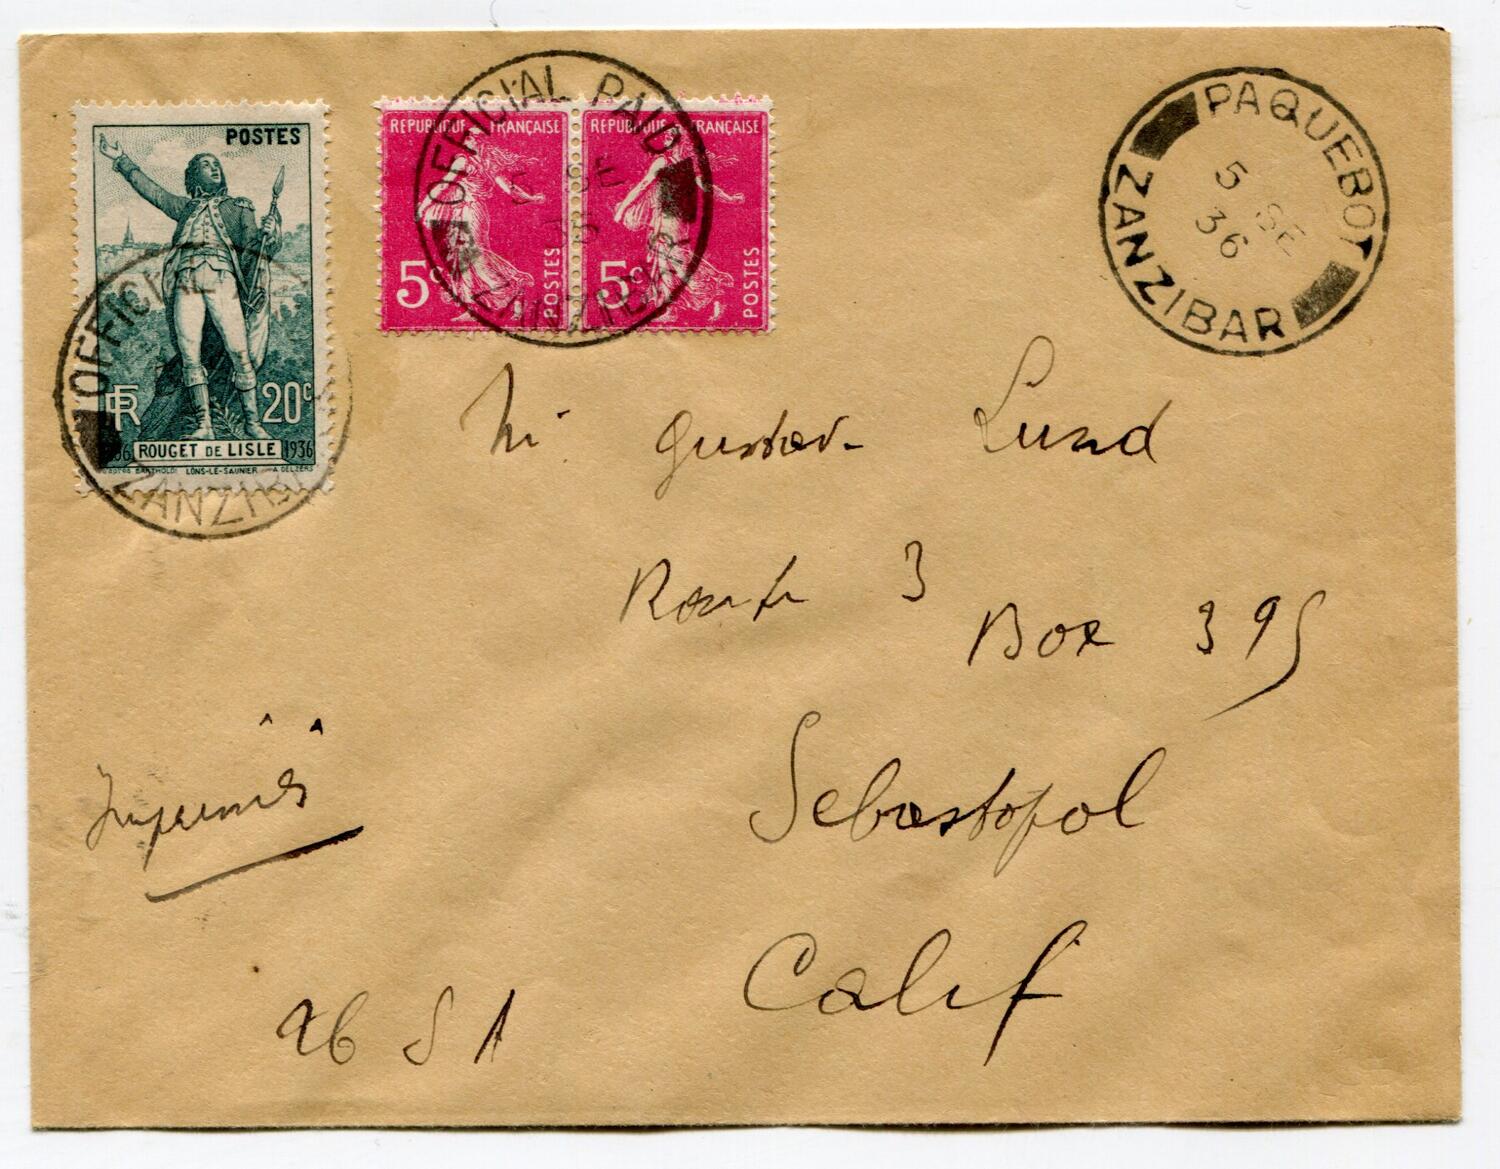 POSTES
RF 20c
ROUGET DE LISLE 1936
LONS-LE-SAUNIER
OFFICIAL
ZANZIBAR
REPUBLIQUE FRANÇAISE
5c POSTES
REPUBLIQUE FRANÇAISE
5c POSTES
OFFICIAL PAID
5 SE
ZANZIBAR
PAQUEBOT
5 SE
36
ZANZIBAR
Gustav Lund
Route 3
Box 395
Sebastopol
Calif
Imprimés
USA